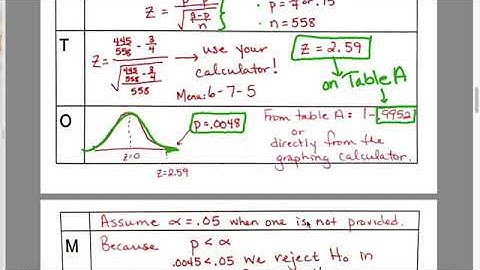 Z = p̂-p / √(p̂-p / n)
• p = 3/4 or .75
• n = 558
T
Z = 445/558 - 3/4 / √(445/558 - 3/4 / 558)
use your
calculator!
Menu: 6-7-5
Z = 2.59
on Table A
O
Z=0
Z=2.59
p=.0048
From table A: 1-.9952
or
directly from the
graphing calculator.
Assume α = .05 when one is not provided.
M
Because p < α
.0045 < .05 we reject H₀ in